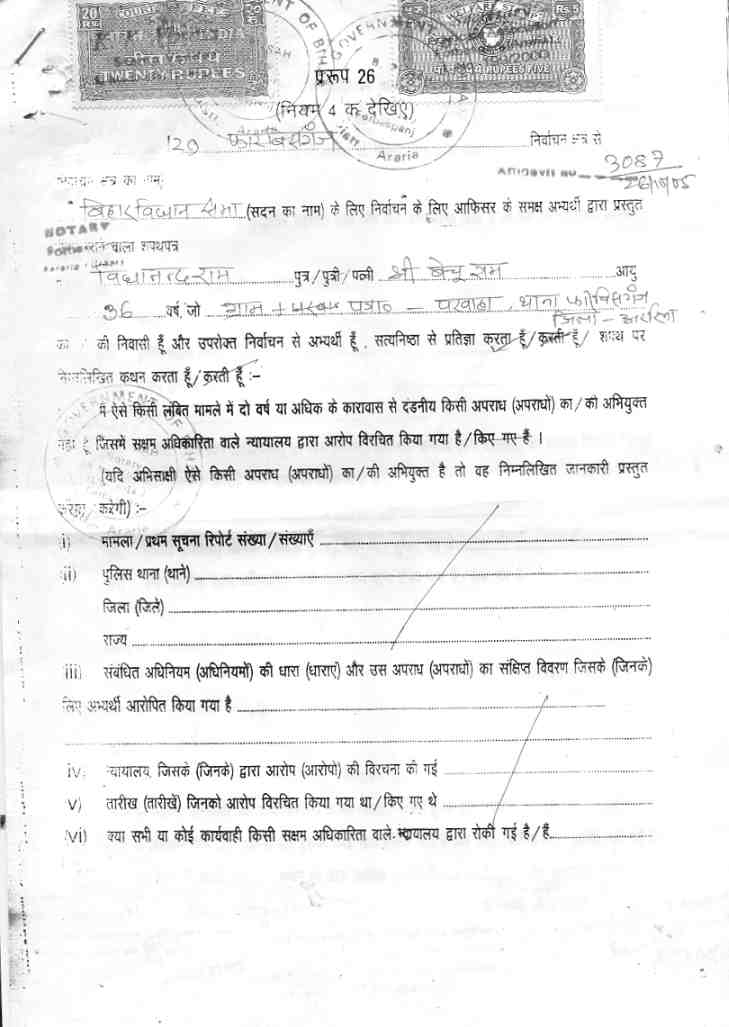 20 COURT
Rs. 5
TWENTY RUPEES
RUPEES FIVE
प्ररूप 26
(नियम 4 क देखिए)
120 फारबिसगंज निर्वाचन क्षत्र से
Araria
AFFIDAVIT NO 3087
26/10/05
बिहार विधान सभा (सदन का नाम) के लिए निर्वाचन के लिए आफिसर के समक्ष अभ्यर्थी द्वारा प्रस्तुत
NOTARY
वाला शपथपत्र
विद्यानन्द राम पुत्र/पुत्री/पत्नी श्री बेचू राम आयु
36 वर्ष, जो ग्राम + पत्रा० – परवाहा, थाना फारबिसगंज
जिला – अररिया
की निवासी हूँ और उपरोक्त निर्वाचन से अभ्यर्थी हूँ, सत्यनिष्ठा से प्रतिज्ञा करता हूँ/करती हूँ/ शपथ पर
निम्नलिखित कथन करता हूँ/करती हूँ :–
मैं ऐसे किसी लंबित मामले में दो वर्ष या अधिक के कारावास से दंडनीय किसी अपराध (अपराधों) का/की अभियुक्त
नहीं हूँ जिसमें सक्षम अधिकारिता वाले न्यायालय द्वारा आरोप विरचित किया गया है/किए गए हैं ।
(यदि अभिसाक्षी ऐसे किसी अपराध (अपराधों) का/की अभियुक्त है तो वह निम्नलिखित जानकारी प्रस्तुत
करेगा/करेगी) :–
i) मामला/प्रथम सूचना रिपोर्ट संख्या/संख्याएँ
ii) पुलिस थाना (थाने)
जिला (जिले)
राज्य
iii) संबंधित अधिनियम (अधिनियमों) की धारा (धाराएं) और उस अपराध (अपराधों) का संक्षिप्त विवरण जिसके (जिनके)
लिए अभ्यर्थी आरोपित किया गया है
iv) न्यायालय, जिसके (जिनके) द्वारा आरोप (आरोपो) की विरचना की गई
v) तारीख (तारीखें) जिनको आरोप विरचित किया गया था/किए गए थे
vi) क्या सभी या कोई कार्यवाही किसी सक्षम अधिकारिता वाले न्यायालय द्वारा रोकी गई है/हैं